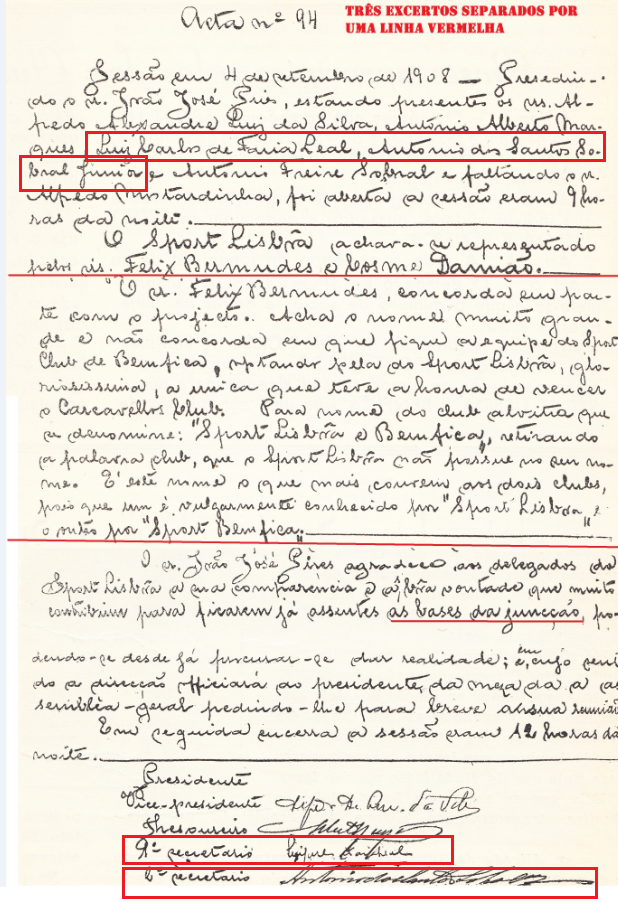 Acta nº 94
TRÊS EXCERTOS SEPARADOS POR
UMA LINHA VERMELHA
Sessão em 4 de setembro de 1908 — Presedin-
do o sr. João José Pires, estando presentes os srs. Al-
fredo Alexandre Luiz da Silva, Antonio Alberto Mar-
ques, Luiz Carlos de Faria Leal, Antonio dos Santos So-
bral Junior e Antonio Freire Sobral e faltando o sr.
Alfredo Mostardinha, foi aberta a sessão eram 9 ho-
ras da noite.
O Sport Lisbôa achava-se representado
pelos srs. Felix Bermudes e Cosme Damião.
O sr. Felix Bermudes, concorda em par-
te com o projecto. Acha o nome muito gran-
de e não concorda em que fique a equipe do Sport
Club de Bemfica, optando pela do Sport Lisbôa, glo-
riosissima, a unica que teve a honra de vencer
o Carcavellos Club. Para nome do club alvitra que
se denomine: "Sport Lisbôa e Bemfica", retirando
a palavra club, que o Sport Lisbôa não possue no seu no-
me. E' este nome o que mais convem aos dois clubs,
pois que um é vulgarmente conhecido por "Sport Lisboa" e
o outro por "Sport Bemfica."
O sr. João José Pires agradece aos delegados do
Sport Lisbôa a sua comparencia e a bôa vontade que muito
contribuiu para ficarem já assentes as bases da juncção, po-
dendo-se desde já procurar-se dar realidade; em cujo senti
do a direcção officiará ao presidente da meza da a as
semblêa-geral pedindo-lhe para breve a sua reunião
Em seguida encerra a sessão eram 12 horas da
noite.
Presidente
Vice-presidente
Thesoureiro
1º secretario
2º secretario Antonio dos Santos Sobral